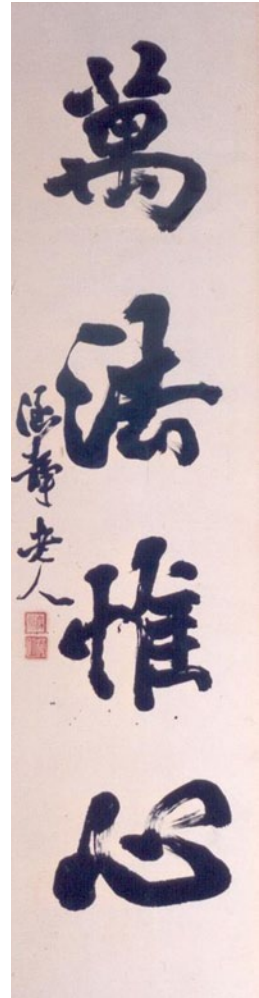 萬法惟心
涵靜老人